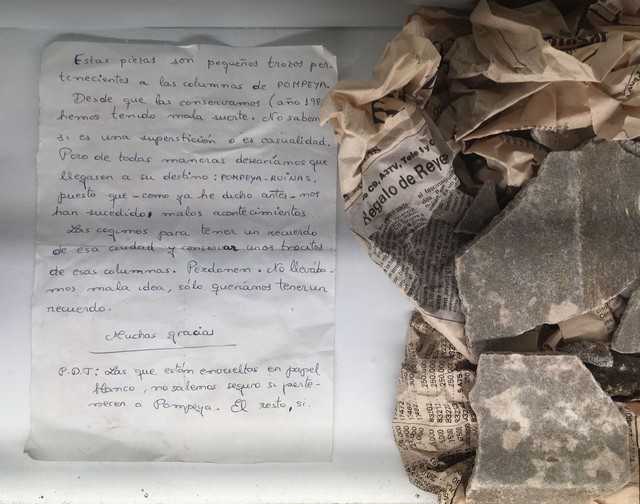 Estas piezas son pequeños trozos per-
tenecientes a las columnas de POMPEYA.
Desde que las conservamos (año 198
hemos tenido mala suerte. No sabem
si es una superstición o es casualidad.
Pero de todas maneras desearíamos que
llegasen a su destino: POMPEYA-RUINAS,
puesto que - como ya he dicho antes - nos
han sucedido malos acontecimientos
Las cogimos para tener un recuerdo
de esa ciudad y conservar unos trocitos
de esas columnas. Perdonen. No llevába-
mos mala idea, sólo queríamos tener un
recuerdo.
Muchas gracias
P.D.T: Las que están envueltas en papel
blanco, no sabemos seguro si perte-
necen a Pompeya. El resto, si.
CO, A3TV, Tele 5 y C
Regalo de Reye